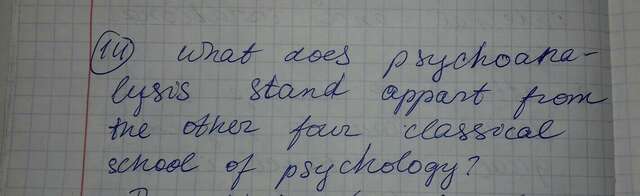 14) What does psychoana-
lysis stand appart from
the other four classical
school of psychology?